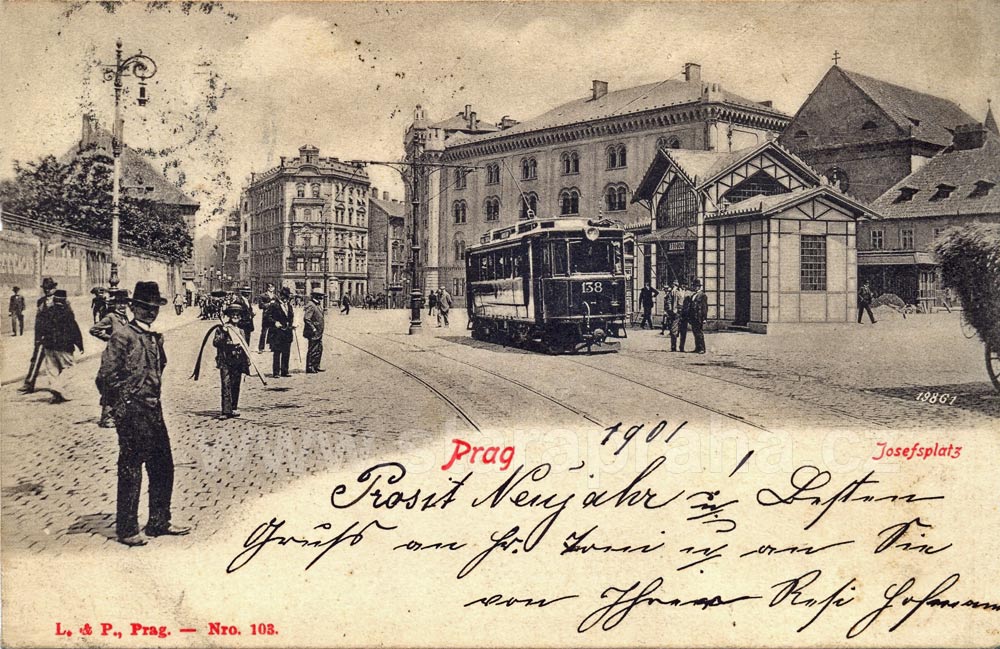 138
19861
1901
Prag
Josefsplatz
Prosit Neujahr u. Besten
Gruss an Hr. u an Sie
von Ihrer Resi Hofmann
L. & P., Prag. — Nro. 103.
www.staraprahа.cz